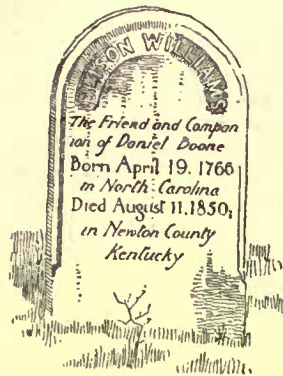 WILLIAMS
The Friend and Compan
ion of Daniel Boone
Born April 19. 1766
in North Carolina
Died August 11. 1850;
in Newton County
Kentucky